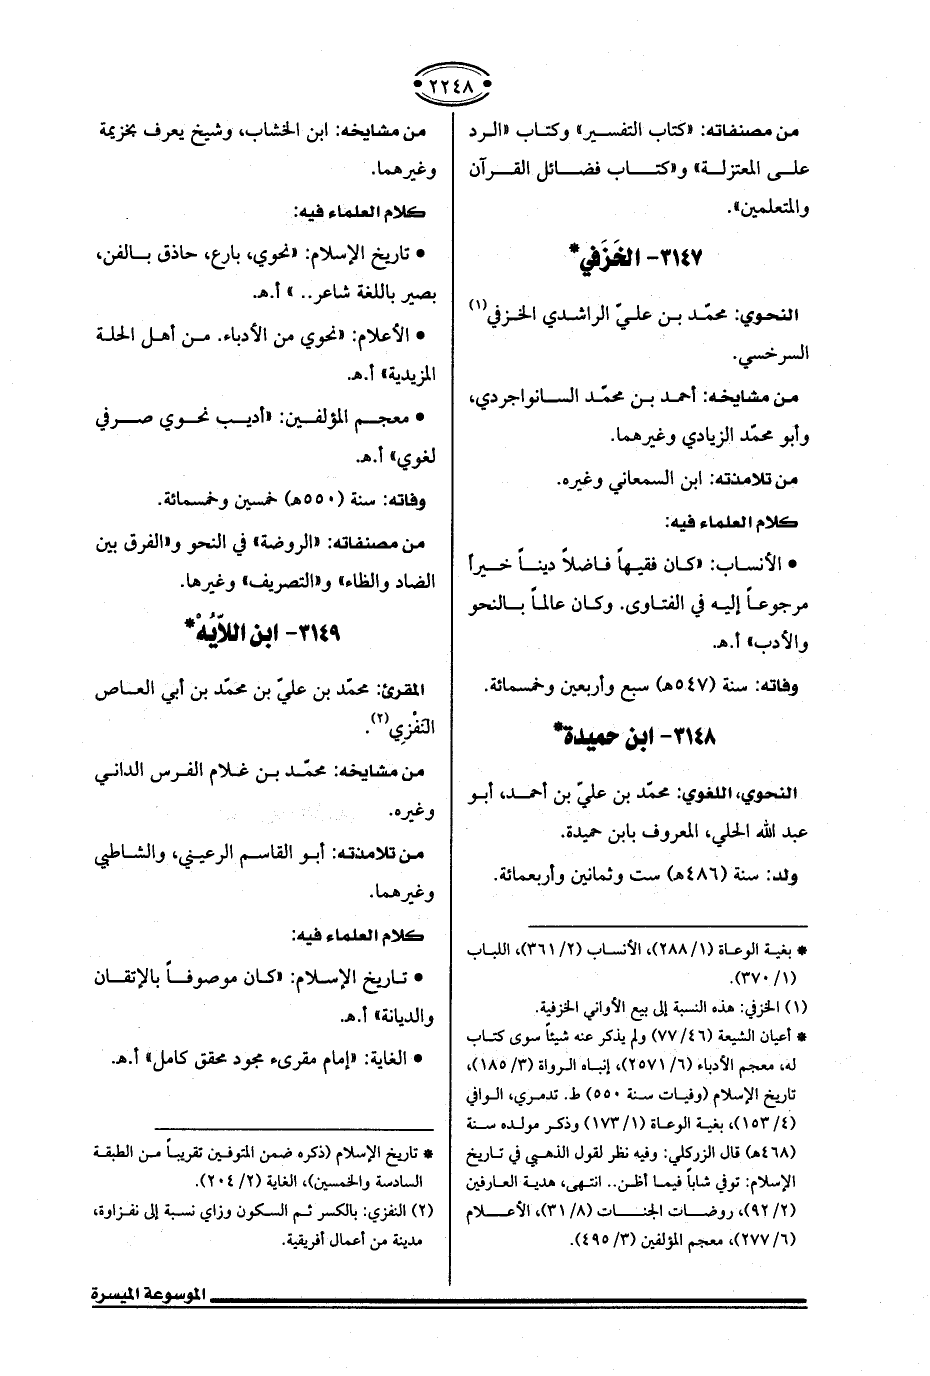 ٢٢٤٨
من مصنفاته: «كتاب التفسير» وكتاب «الرد
على المعتزلة» و«كتاب فضائل القرآن
والمتعلمين».
٣١٤٧- الخَزَفي*
النحوي: محمّد بن عليّ الراشدي الخزفي(١)
السرخسي.
من مشايخه: أحمد بن محمّد السانواجردي،
وأبو محمّد الزيادي وغيرهما.
من تلامذته: ابن السمعاني وغيره.
كلام العلماء فيه:
• الأنساب: «كان فقيهاً فاضلاً ديناً خيراً
مرجوعاً إليه في الفتاوى. وكان عالماً بالنحو
والأدب» أ.هـ.
وفاته: سنة (٥٤٧هـ) سبع وأربعين وخمسمائة.
٣١٤٨- ابن حميدة*
النحوي، اللغوي: محمّد بن عليّ بن أحمد، أبو
عبد الله الحلي، المعروف بابن حميدة.
ولد: سنة (٤٨٦هـ) ست وثمانين وأربعمائة.
* بغية الوعاة (١/ ٢٨٨)، الأنساب (٢/ ٣٦١)، اللباب
(١/ ٣٧٠).
(١) الخزفي: هذه النسبة إلى بيع الأواني الخزفية.
* أعيان الشيعة (٤٦/ ٧٧) ولم يذكر عنه شيئاً سوى كتاب
له، معجم الأدباء (٦/ ٢٥٧١)، إنباه الرواة (٣/ ١٨٥)،
تاريخ الإسلام (وفيات سنة ٥٥٠) ط. تدمري، الوافي
(٤/ ١٥٣)، بغية الوعاة (١/ ١٧٣) وذكر مولده سنة
(٤٦٨هـ) قال الزركلي: وفيه نظر لقول الذهبي في تاريخ
الإسلام: توفي شاباً فيما أظن.. انتهى، هدية العارفين
(٢/ ٩٢)، روضات الجنات (٨/ ٣١)، الأعلام
(٦/ ٢٧٧)، معجم المؤلفين (٣/ ٤٩٥).
من مشايخه: ابن الخشاب، وشيخ يعرف بخزيمة
وغيرهما.
كلام العلماء فيه:
• تاريخ الإسلام: «نحوي، بارع، حاذق بالفن،
بصير باللغة شاعر.. » أ.هـ.
• الأعلام: «نحوي من الأدباء. من أهل الحلة
المزيدية» أ.هـ.
• معجم المؤلفين: «أديب نحوي صرفي
لغوي» أ.هـ.
وفاته: سنة (٥٥٠هـ) خمسين وخمسمائة.
من مصنفاته: «الروضة» في النحو و«الفرق بين
الضاد والظاء» و«التصريف» وغيرها.
٣١٤٩- ابن اللاَّيُهْ*
المقرئ: محمّد بن عليّ بن محمّد بن أبي العاص
النَفْزِي(٢).
من مشايخه: محمّد بن غلام الفرس الداني
وغيره.
من تلامذته: أبو القاسم الرعيني، والشاطبي
وغيرهما.
كلام العلماء فيه:
• تاريخ الإسلام: «كان موصوفاً بالإتقان
والديانة» أ.هـ.
• الغاية: «إمام مقرىء مجود محقق كامل» أ.هـ.
* تاريخ الإسلام (ذكره ضمن المتوفين تقريباً من الطبقة
السادسة والخمسين)، الغاية (٢/ ٢٠٤).
(٢) النفزي: بالكسر ثم السكون وزاي نسبة إلى نفزاوة،
مدينة من أعمال أفريقية.
الموسوعة الميسرة